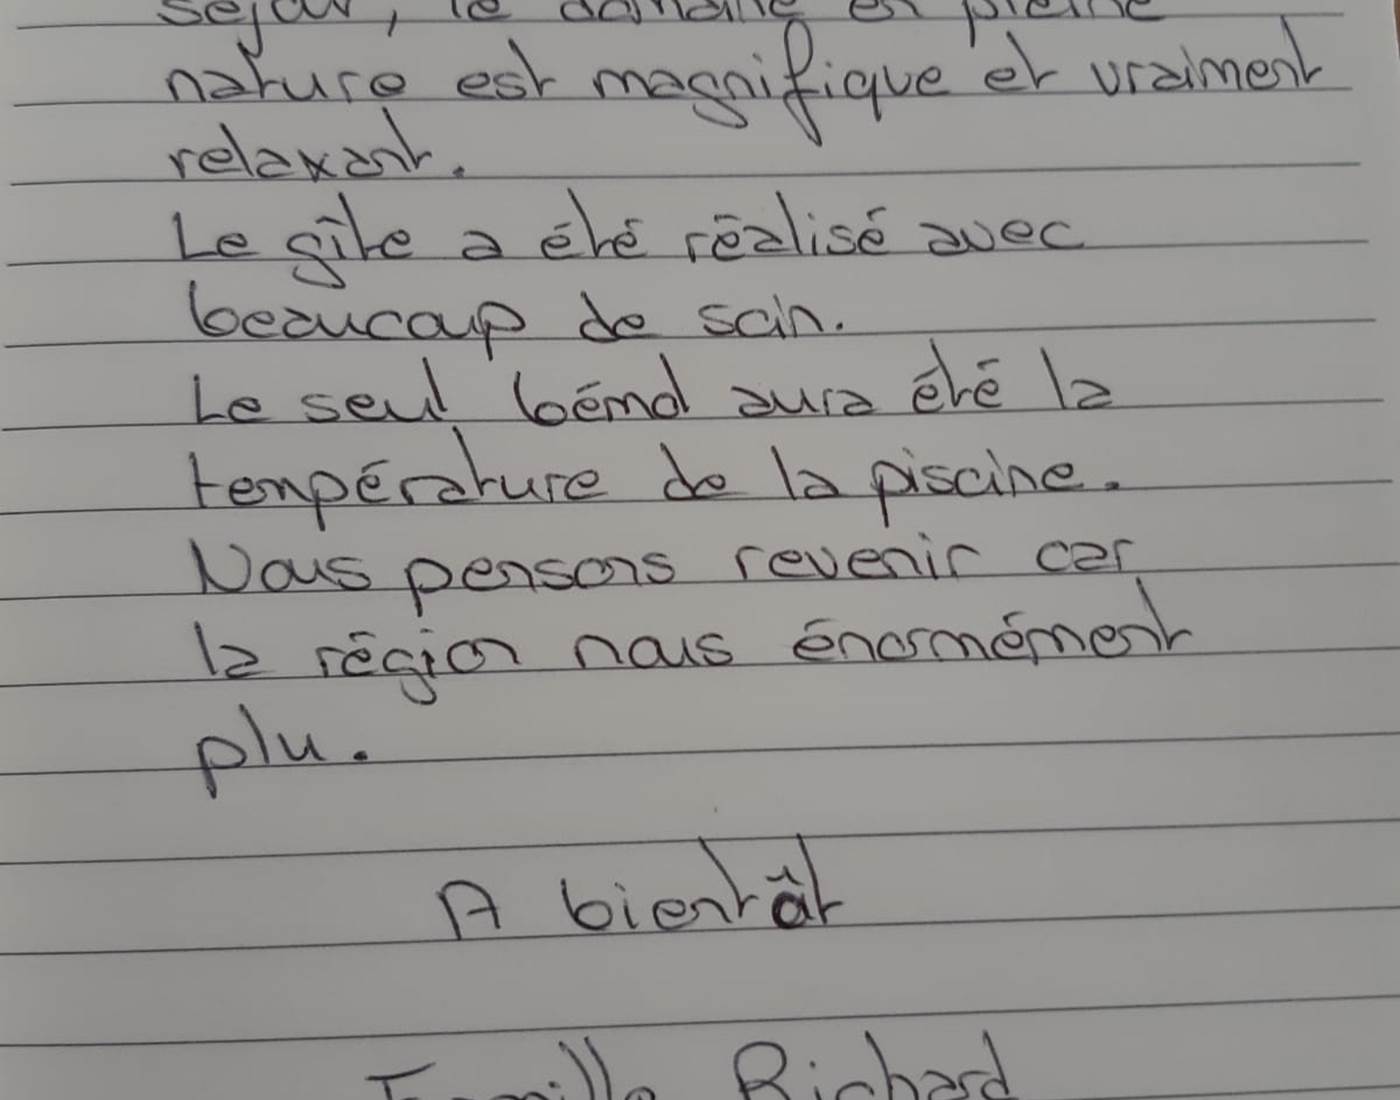 séjour, le domaine en pleine
nature est magnifique et vraiment
relaxant.
Le gîte a été réalisé avec
beaucoup de soin.
Le seul bémol aura été la
température de la piscine.
Nous pensons revenir car
la région nous énormément
plu.
A bientôt
Famille Richard